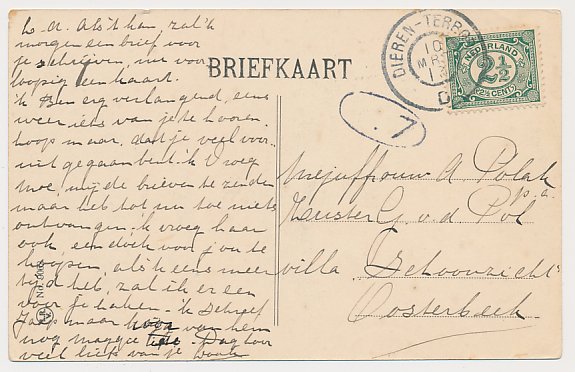 L. A. Als 't kan, zal 'k
morgen een brief voor
je schrijven, nu voor
loopig een kaart.
'k Ben erg verlangend, eens
weer iets van je te hooren.
hoop maar, dat je veel voor-
uit gegaan bent. 'k Vroeg
Moe, mij de brieven te zenden
maar heb tot nu toe niets
ontvangen. 'k vroeg haar
ook, een doek voor jou te
koopen, als ik eens meer
tijd heb, zal ik er een
voor je haken. 'k schreef
Jaap maar van hem
nog Dag hoor
veel liefs van je
BRIEFKAART
DIEREN-TERBO
10
MRT
1
NEDERLAND
2½
(2½ CENT)
7
Mejuffrouw A Polak
p.a.
Zuster G. v. d. Pol
villa Schoonzicht
Oosterbeek
No.